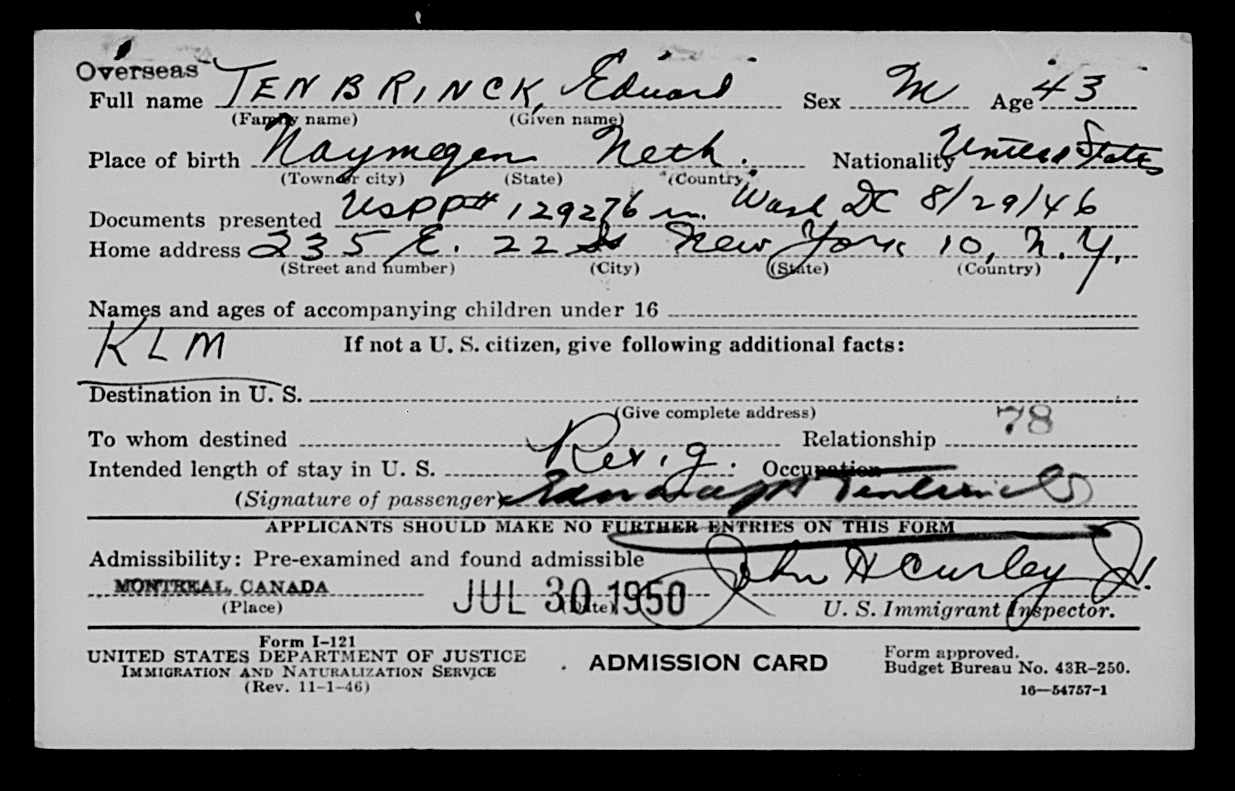 Overseas
Full name TENBRINCK, Eduard Sex M Age 43
(Family name) (Given name)
Place of birth Naymegen Neth. Nationality United States
(Town or city) (State) (Country)
Documents presented USPP# 129276 in. Wash DC 8/29/46
Home address 235 E. 22 St New York 10, N.Y.
(Street and number) (City) (State) (Country)
Names and ages of accompanying children under 16
KLM If not a U. S. citizen, give following additional facts:
Destination in U. S.
(Give complete address)
78
To whom destined Relationship
Intended length of stay in U. S. Occupation
(Signature of passenger)
APPLICANTS SHOULD MAKE NO FURTHER ENTRIES ON THIS FORM
Admissibility: Pre-examined and found admissible
MONTREAL, CANADA JUL 30 1950 John H Curley Jr.
(Place) (Date) U. S. Immigrant Inspector.
Form I-121
UNITED STATES DEPARTMENT OF JUSTICE
IMMIGRATION AND NATURALIZATION SERVICE
(Rev. 11-1-46)
ADMISSION CARD
Form approved.
Budget Bureau No. 43R-250.
16—54757-1